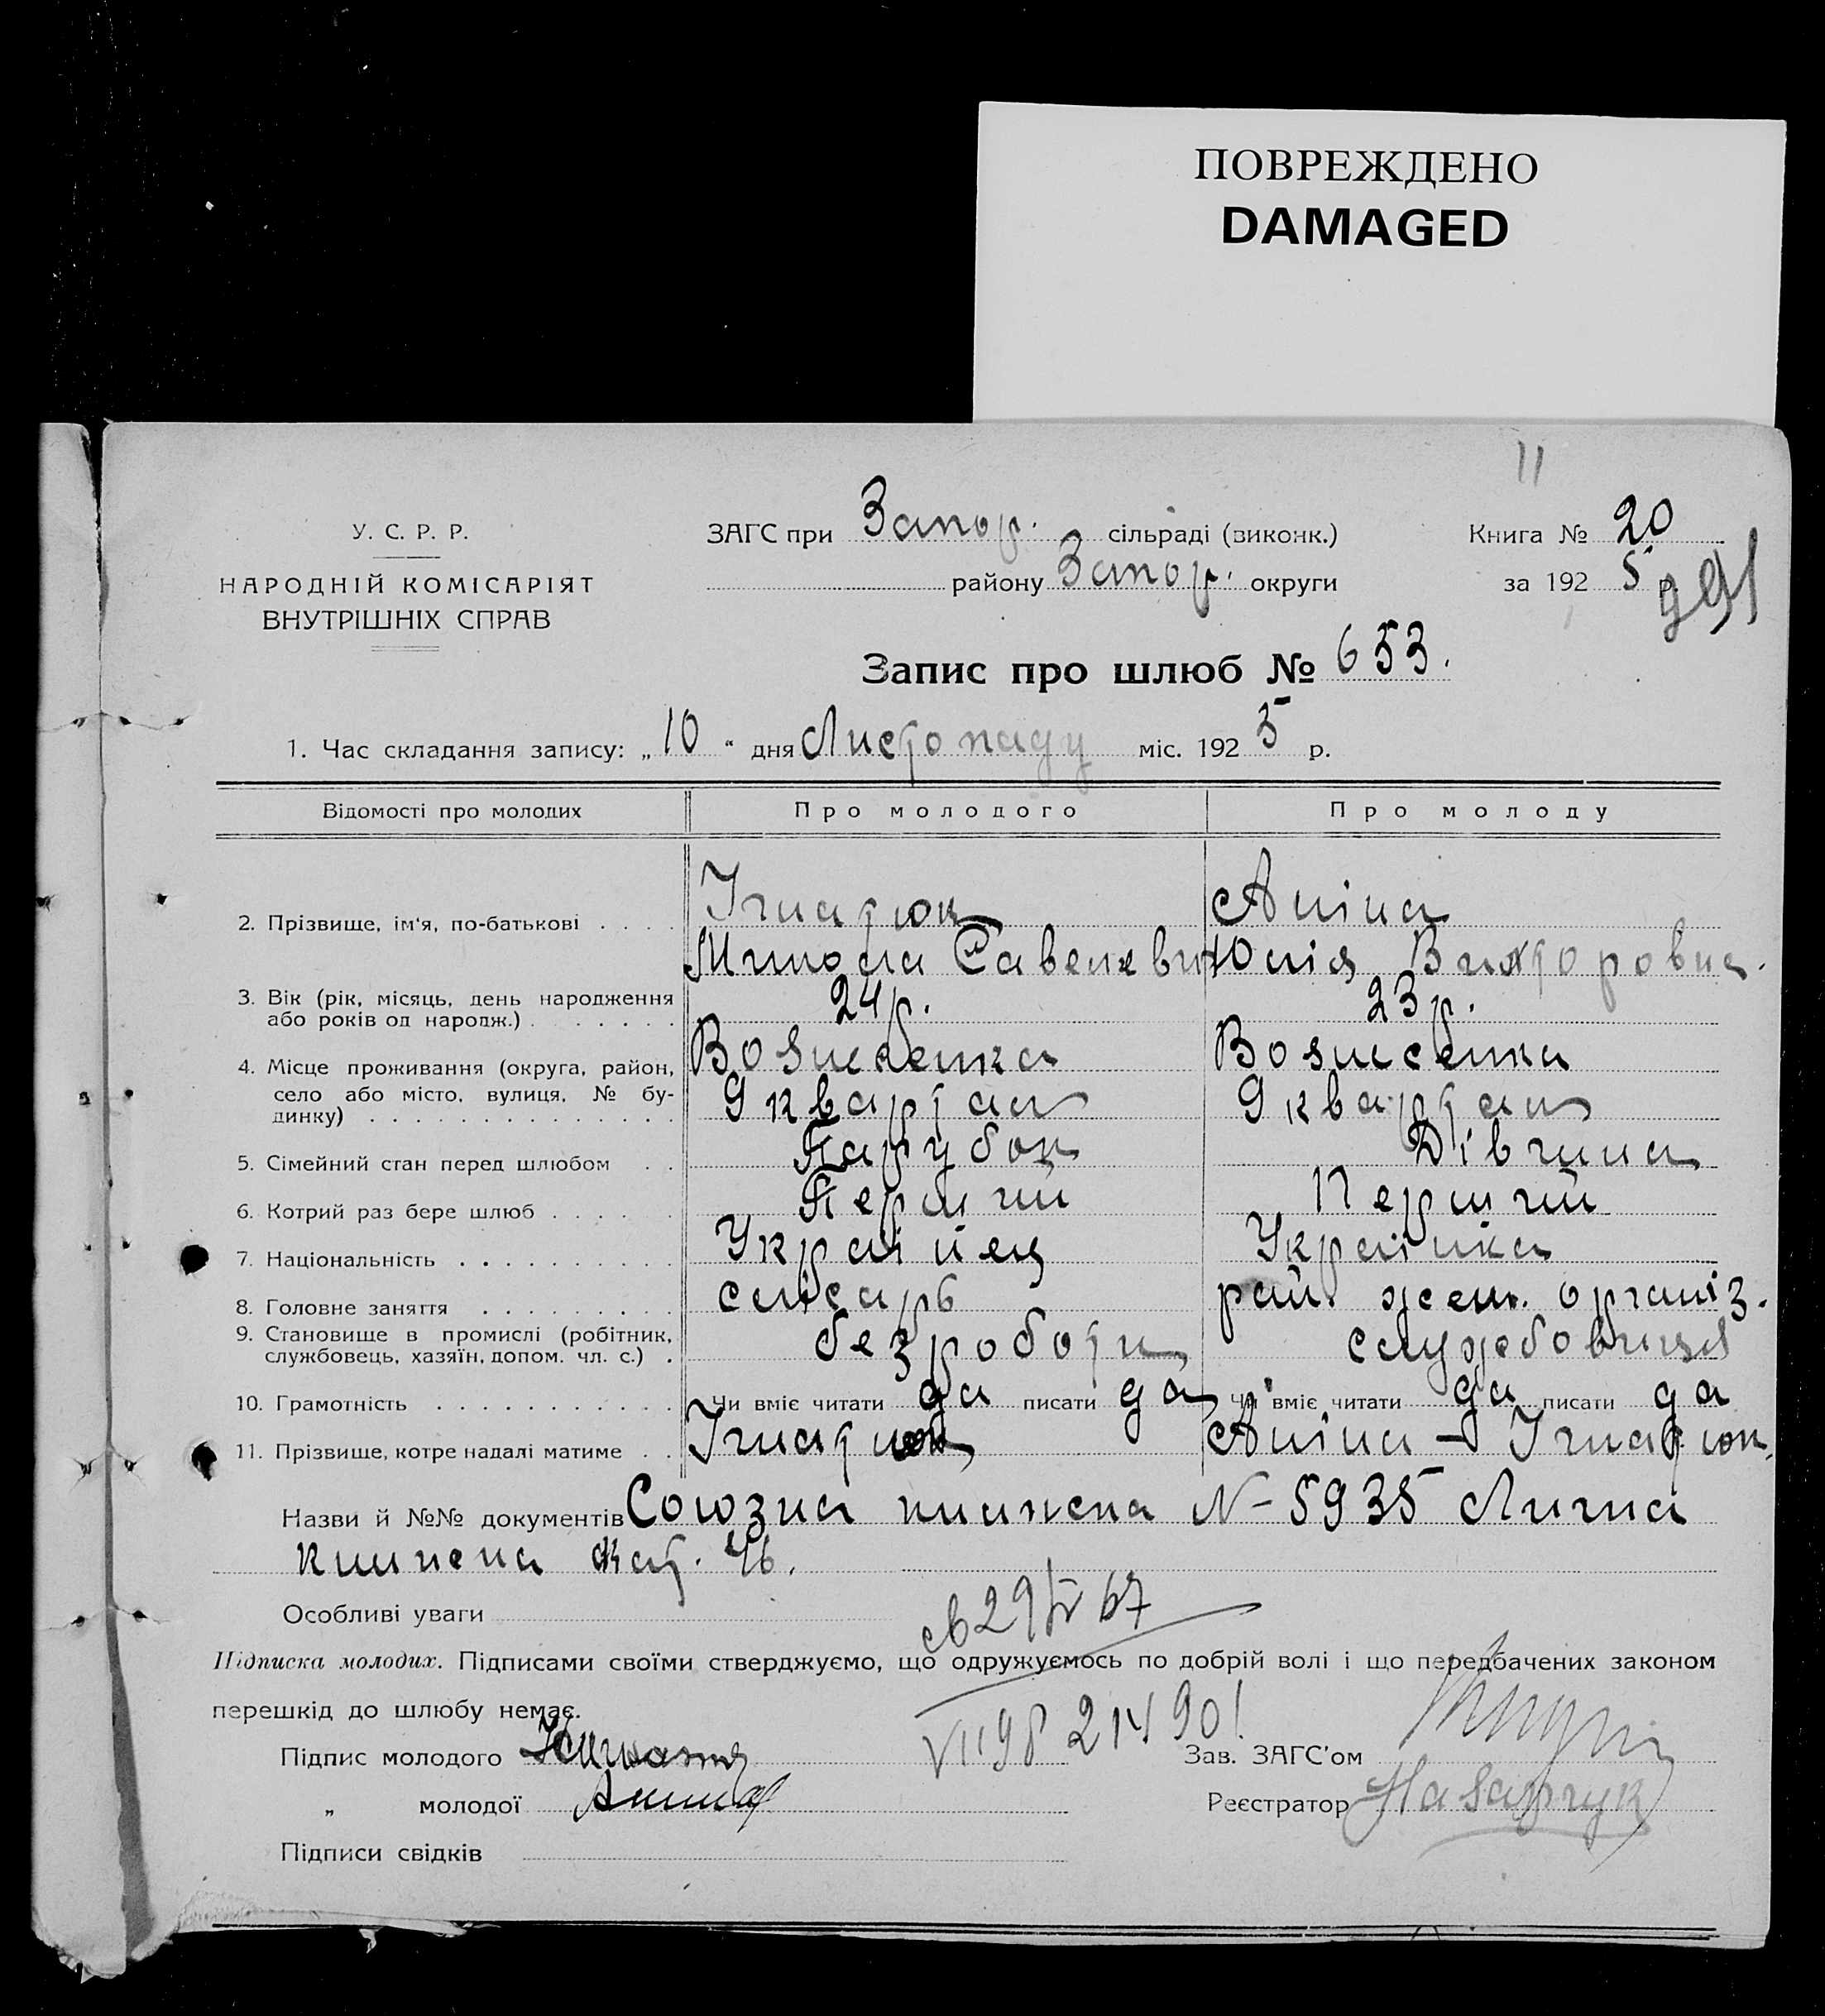 ПОВРЕЖДЕНО
DAMAGED
11
У. С. Р. Р.
НАРОДНІЙ КОМІСАРІЯТ
ВНУТРІШНІХ СПРАВ
ЗАГС при Запор. сільраді (виконк.)
району Запор. округи
Книга № 20
за 192 5 р.
991
Запис про шлюб № 653.
1. Час складання запису: „ 10 “ дня Листопаду міс. 192 5 р.
Відомості про молодих Про молодого Про молоду
2. Прізвище, ім'я, по-батькові . . . . Ігнатюк Аніна
Микола Савелєвич Юлія Викторовна.
3. Вік (рік, місяць, день народження
або років од нарοдж.) . . . . . . . 24р. 23р.
4. Місце проживання (округа, район, Вознесенка Вознесенка
село або місто, вулиця, № бу-
динку) . . . . . . . . . . . . . . 9 квартал 9 квартал
5. Сімейний стан перед шлюбом . . Парубок Дівчина
6. Котрий раз бере шлюб . . . . . Перший Перший
7. Національність . . . . . . . . . . Українец Українка
8. Головне заняття . . . . . . . . . слісарь рай. жен. організ.
9. Становище в промислі (робітник,
службовець, хазяїн, допом. чл. с.) . безроботн службовиця
10. Грамотність . . . . . . . . . . . Чи вміє читати да писати да Чи вміє читати да писати да
11. Прізвище, котре надалі матиме . . Ігнатюк Аніна - Ігнатюк.
Назви й №№ документів Союзна книжка № 5935 Лична
книжка кат. 46.
Особливі уваги
св 29/IV 67
Підписка молодих. Підписами своїми стверджуємо, що одружуємось по добрій волі і що передбачених законом
перешкід до шлюбу немає.
VII 98 214901
Підпис молодого
Зав. ЗАГС'ом
„ молодої Анина
Реєстратор Назарчук
Підписи свідків